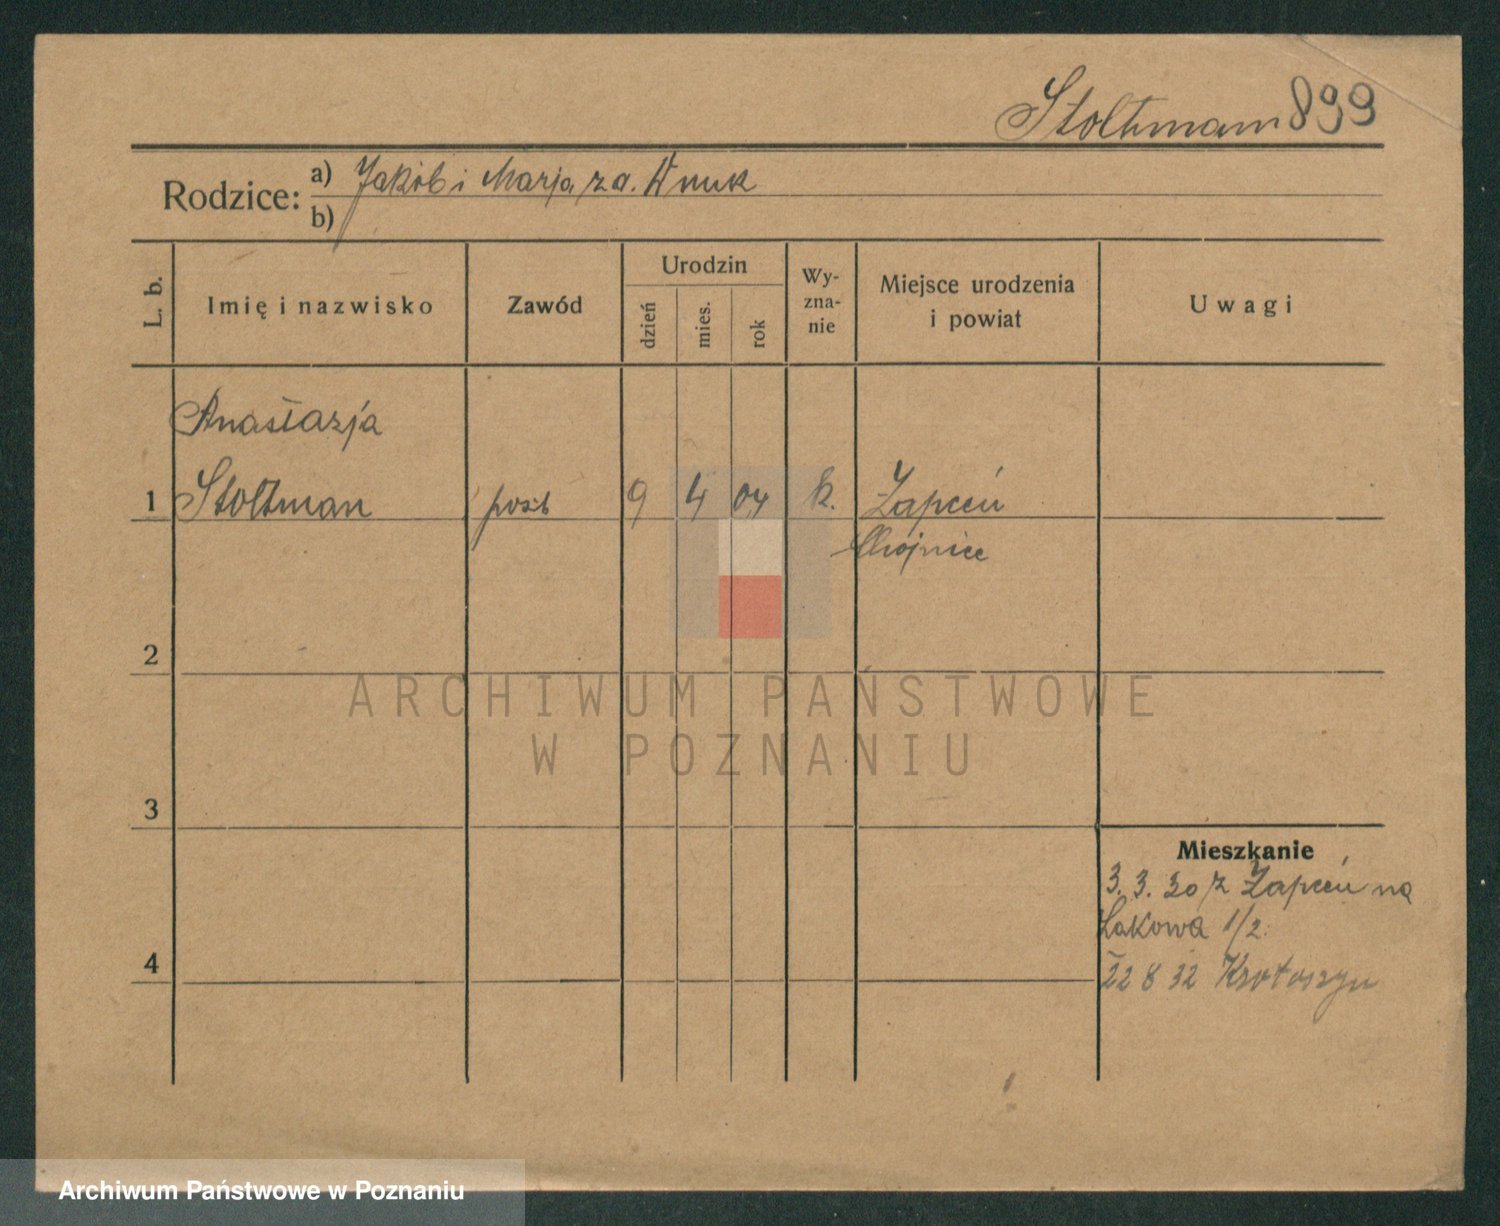 Stoltmann 899
Rodzice:
a) Jakób i Marja, z d. Wnuk
b)
L. b.
Imię i nazwisko
Zawód
Urodzin
dzień
mies.
rok
Wy-
zna-
nie
Miejsce urodzenia
i powiat
Uwagi
Anastazja
1 Stoltman post 9 4 04 k. Zapceń
Chojnice
2
ARCHIWUM PAŃSTWOWE
W POZNANIU
3
Mieszkanie
3. 3. 30 z Zapceń na
Łąkowa 1/2.
4
22 8 32 Krotoszyn
Archiwum Państwowe w Poznaniu